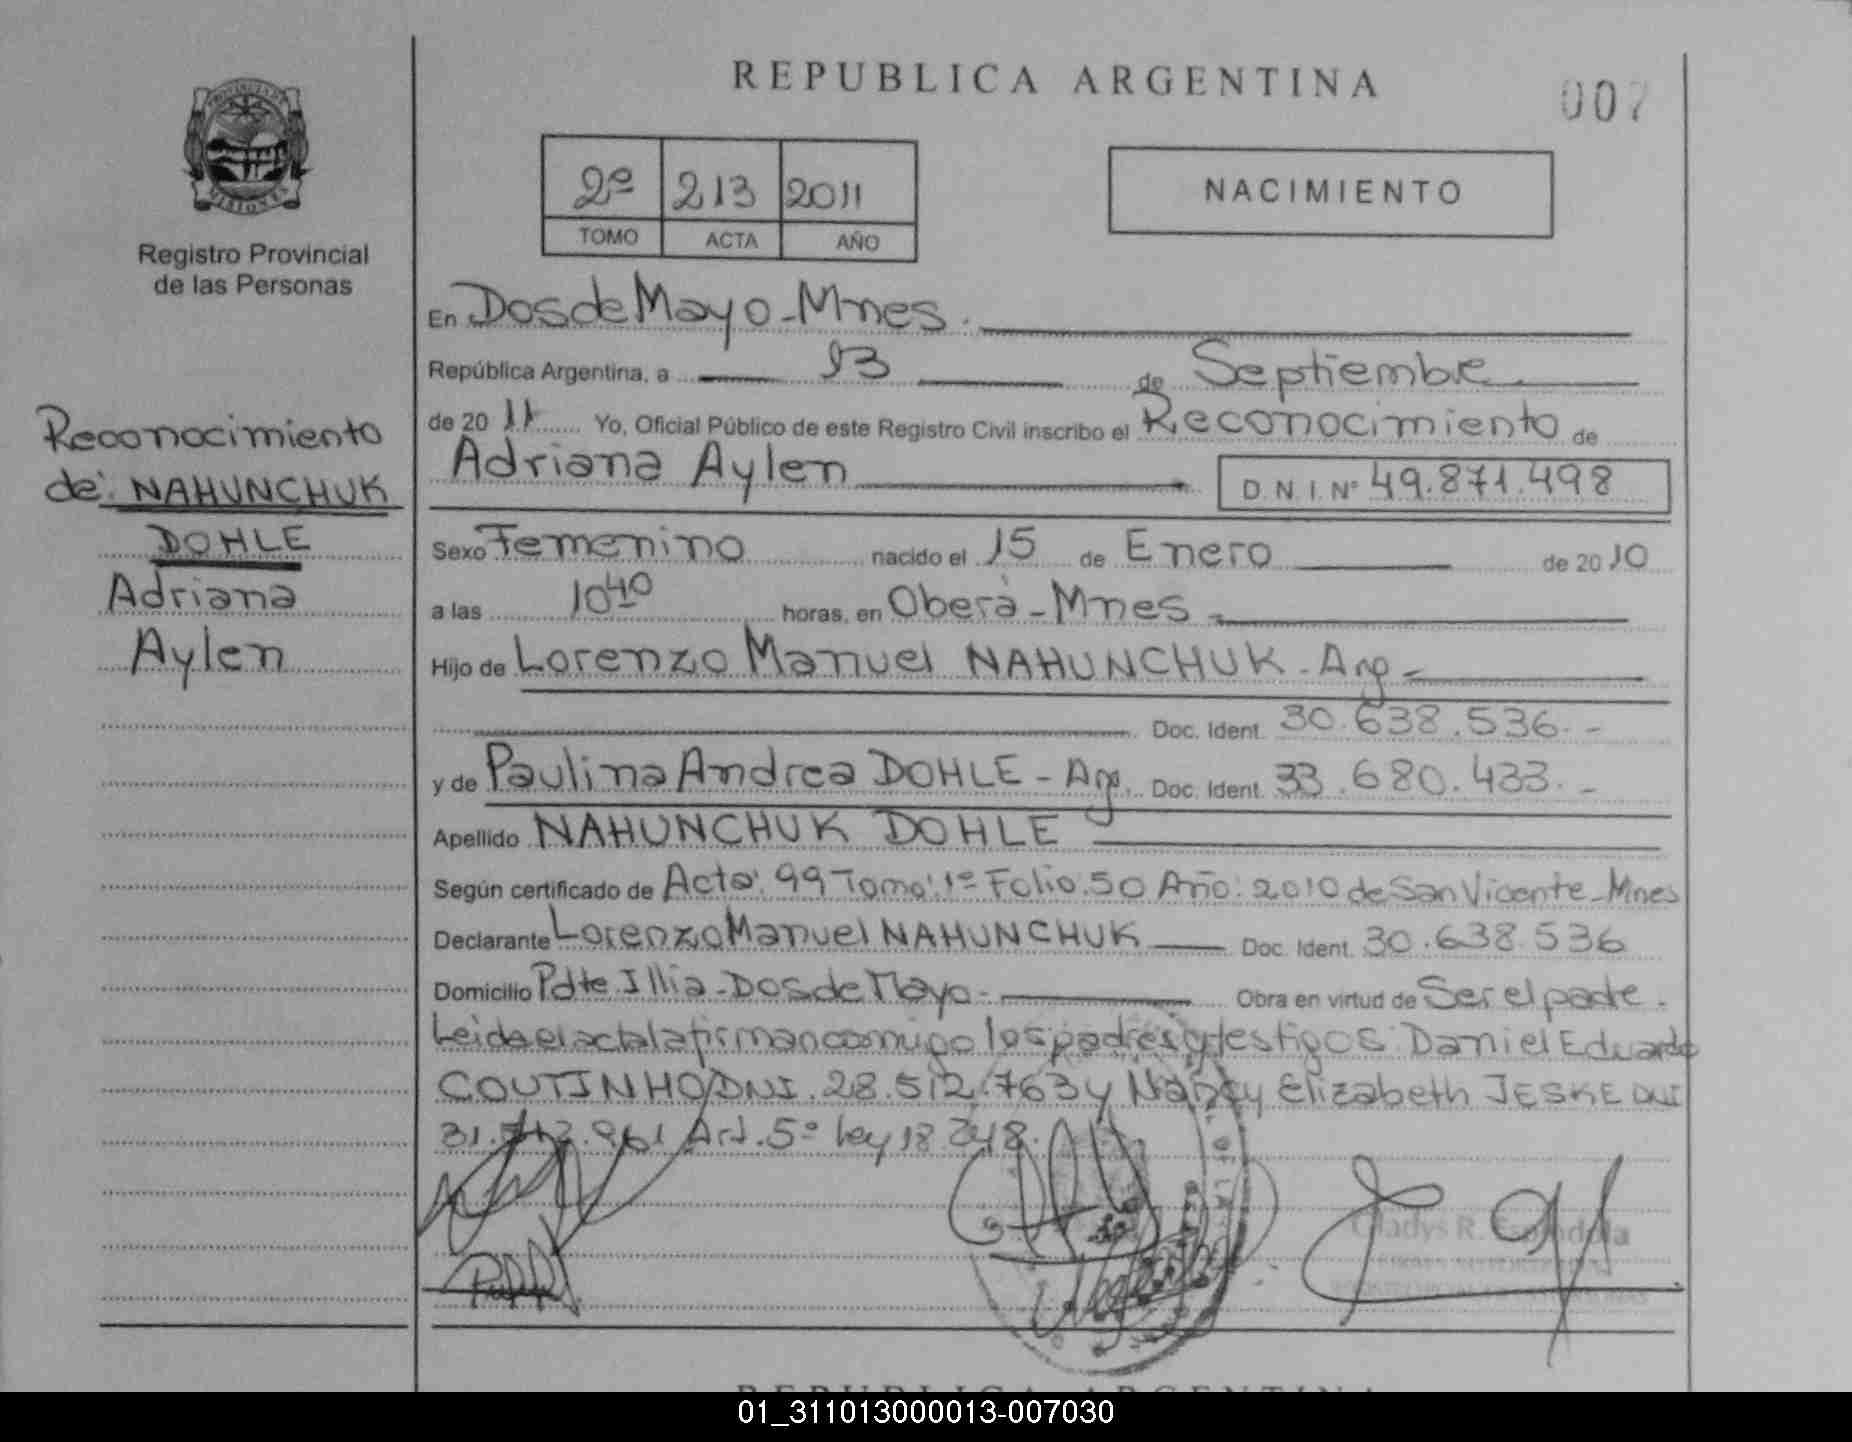 REPUBLICA ARGENTINA
007
PROVINCIA DE
MISIONES
Registro Provincial
de las Personas
2º 213 2011
TOMO ACTA AÑO
NACIMIENTO
En Dos de Mayo - Mnes.
República Argentina, a 13 de Septiembre
de 2011 Yo, Oficial Público de este Registro Civil inscribo el Reconocimiento de
Adriana Aylen D.N.I. Nº 49.871.498
Reconocimiento
de: NAHUNCHUK
DOHLE
Adriana
Aylen
Sexo Femenino nacido el 15 de Enero de 2010
a las 10 40 horas, en Oberá - Mnes -
Hijo de Lorenzo Manuel NAHUNCHUK - Arg -
Doc. Ident. 30.638.536.-
y de Paulina Andrea DOHLE - Arg. Doc. Ident. 33.680.433.-
Apellido NAHUNCHUK DOHLE
Según certificado de Acta: 99 Tomo: 1º Folio: 50 Año: 2010 de San Vicente - Mnes
Declarante Lorenzo Manuel NAHUNCHUK Doc. Ident. 30.638.536
Domicilio Pdte Illia - Dos de Mayo - Obra en virtud de Ser el padre.
Leida el acta la firman conmigo los padres y testigos: Daniel Eduardo
COUTINHO DNI. 28.512.763 y Nancy Elizabeth JESKE DNI
961 Art. 5º Ley 18.248.
Gladys R. Espindola
REPUBLICA ARGENTINA
01_311013000013-007030